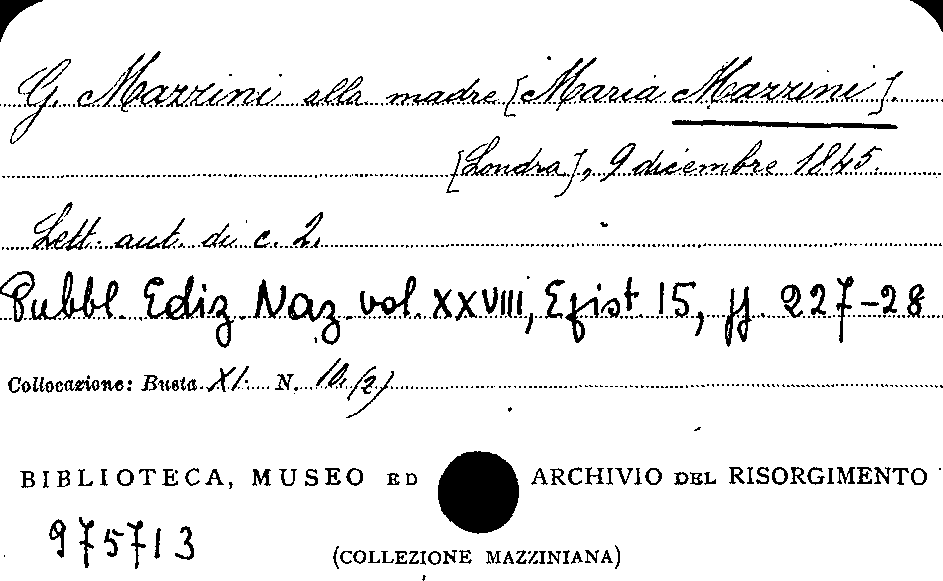 G. Mazzini alla madre [Maria Mazzini].
[Londra], 9 dicembre 1845.
Lett. aut. di c. 2.
Pubbl. Ediz. Naz. vol. XXVIII, Epist 15, pp. 227-28
Collocazione: Busta XI. N. 10, (2)
BIBLIOTECA, MUSEO ED ARCHIVIO DEL RISORGIMENTO
975713
(COLLEZIONE MAZZINIANA)